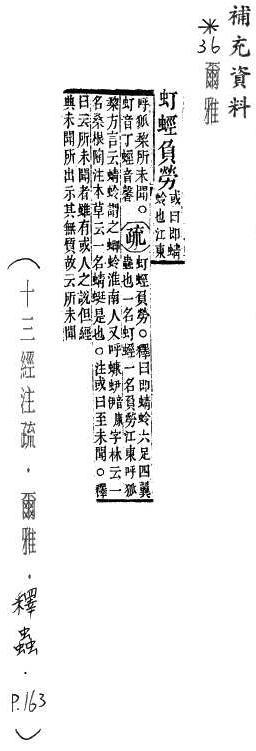 補充資料
*36 爾雅
虰蛵負勞 或曰即蜻
蛉也江東
呼狐棃所未聞。
虰音丁蛵音馨
疏 虰蛵負勞。釋曰即蜻蛉六足四翼
蟲也一名虰蛵一名負勞江東呼狐
棃方言云蜻蛉謂之蝍蛉淮南人又呼 字林云一
名桑根陶注本草云一名蜻蜓是也。注或曰至未聞。釋
曰云所未聞者雖有或人之說但經
典未聞所出示其無質故云所未聞
(十三經注疏．爾雅．釋蟲．P.163)